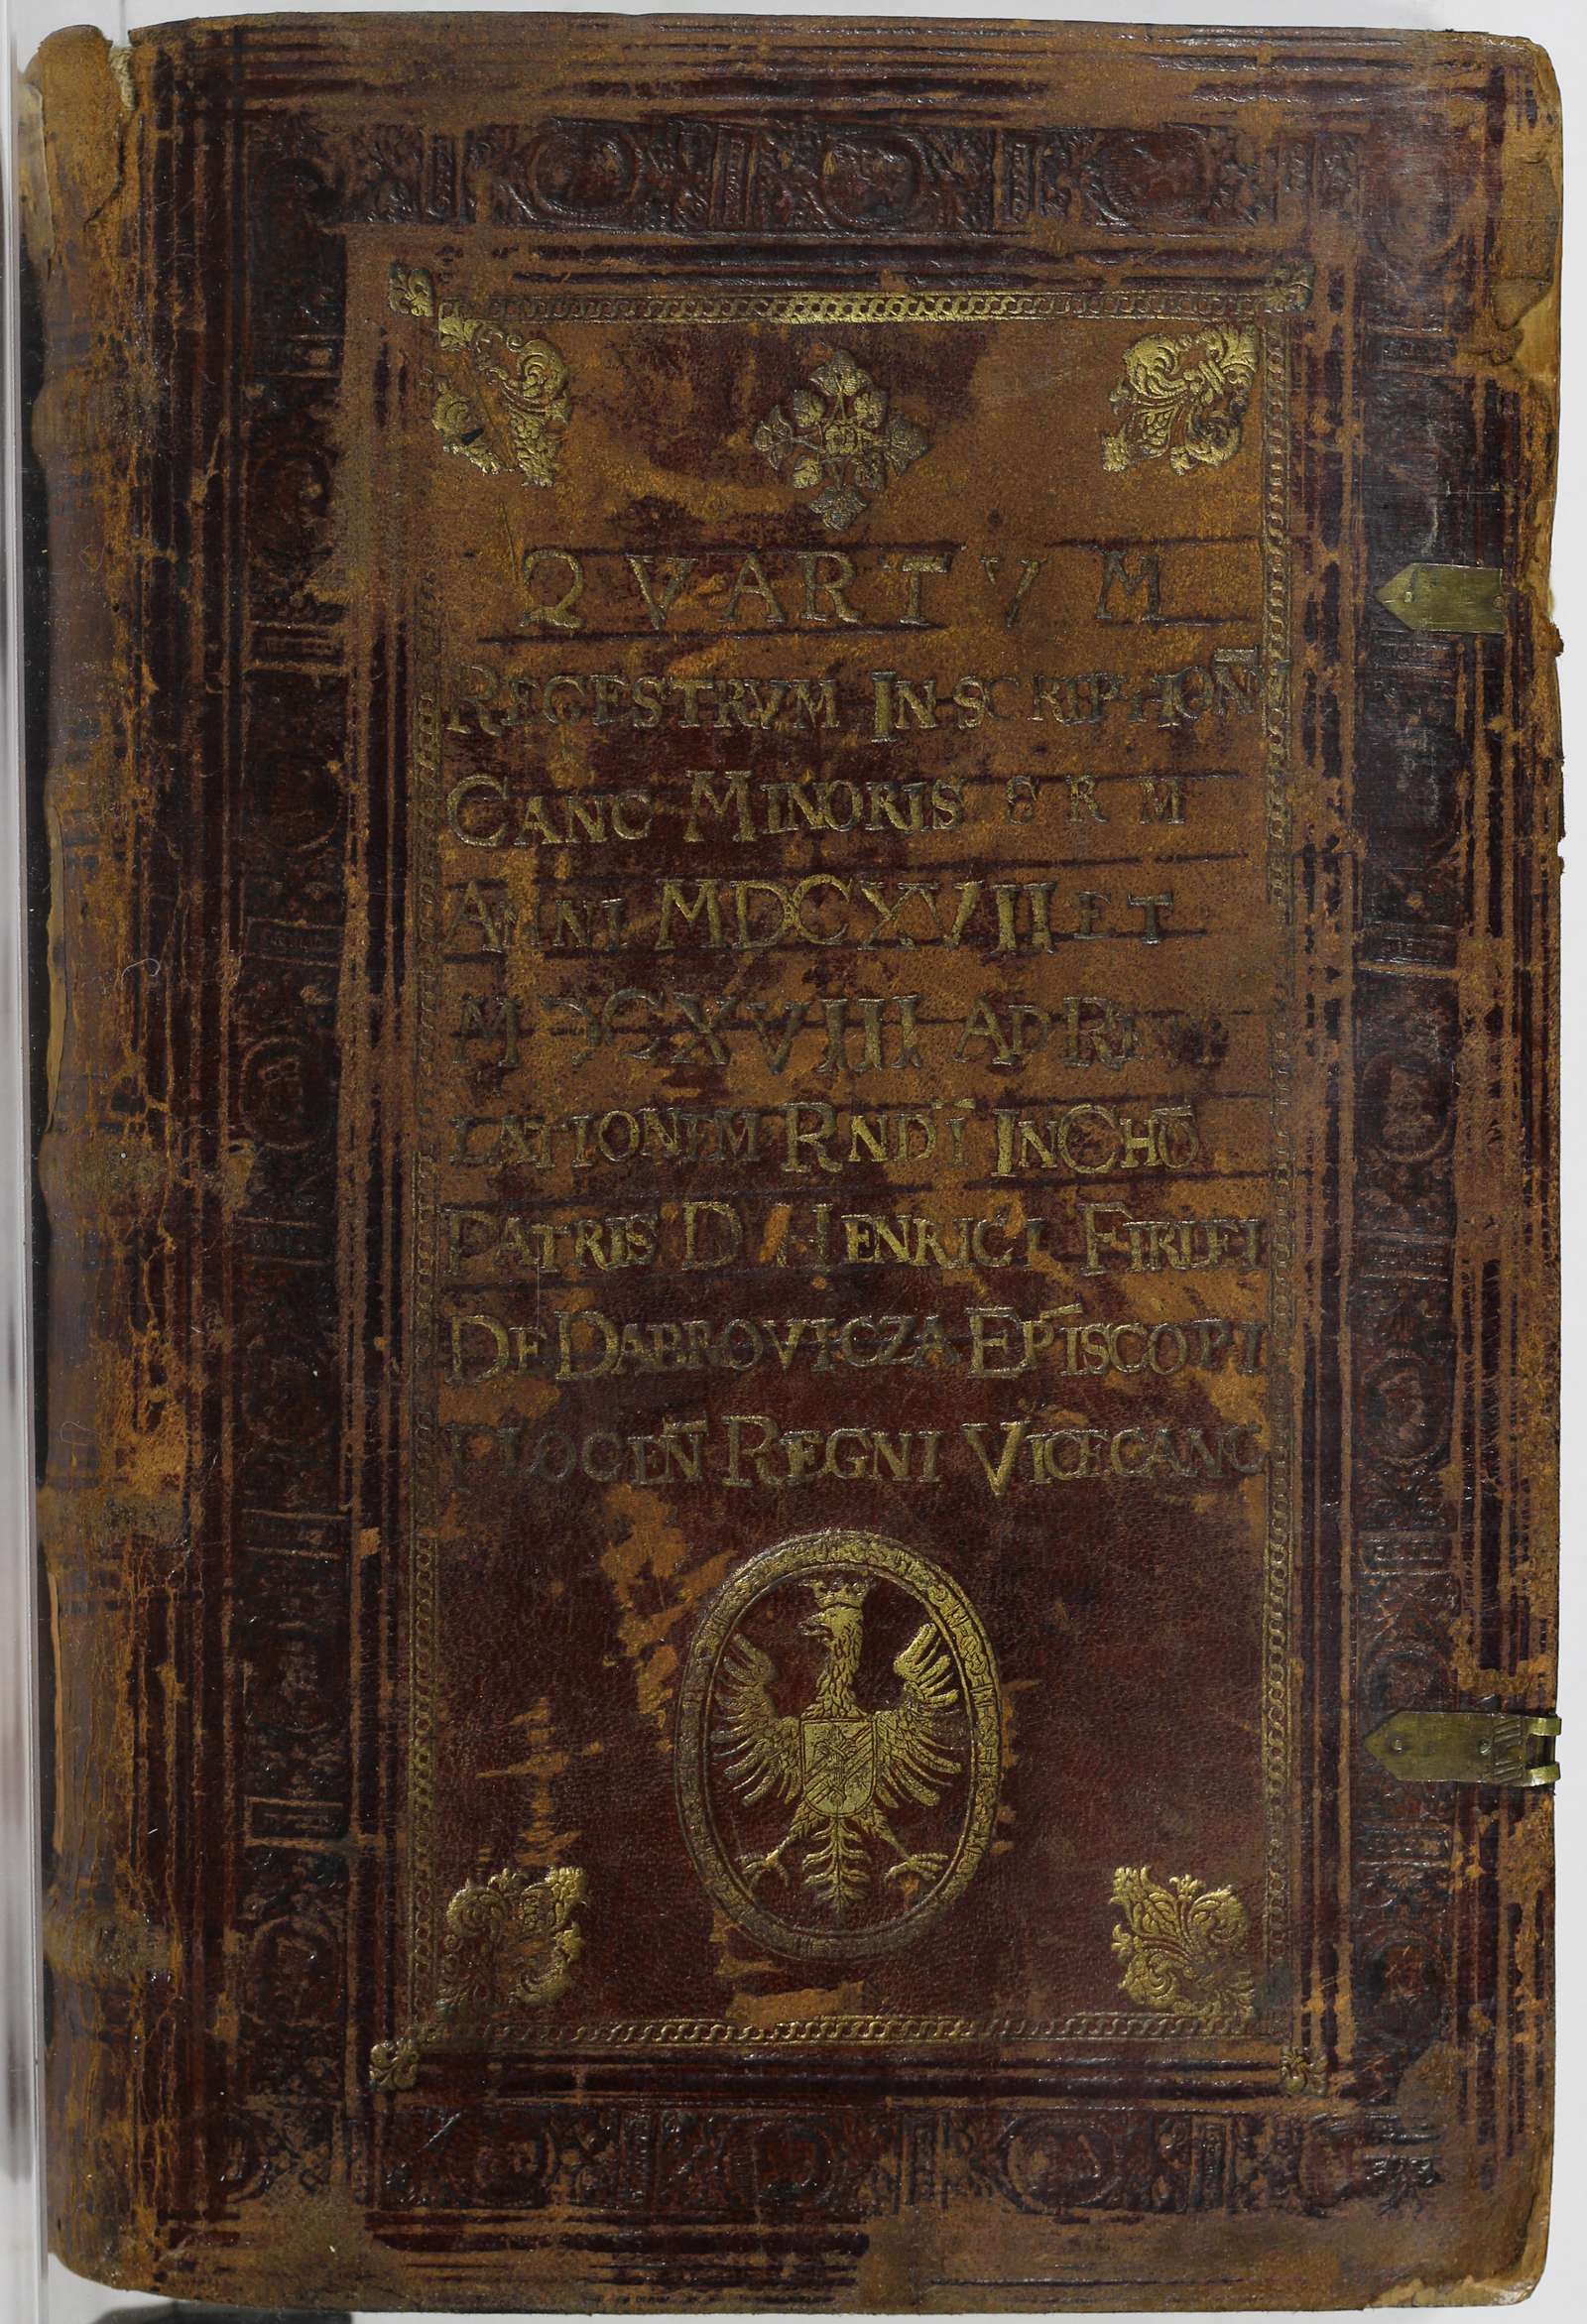 QVARTVM
REGESTRVM INSCRIPTION̄
CANC MINORIS S R M
ANNI MDCXVII ET
MDCXVIII AD RE
LATIONEM RNDĪ IN CHŌ
PATRIS D HENRICI FIRLEI
DE DABROVICZA EPĪSCOPI
PLOCEN̄ REGNI VICECANC